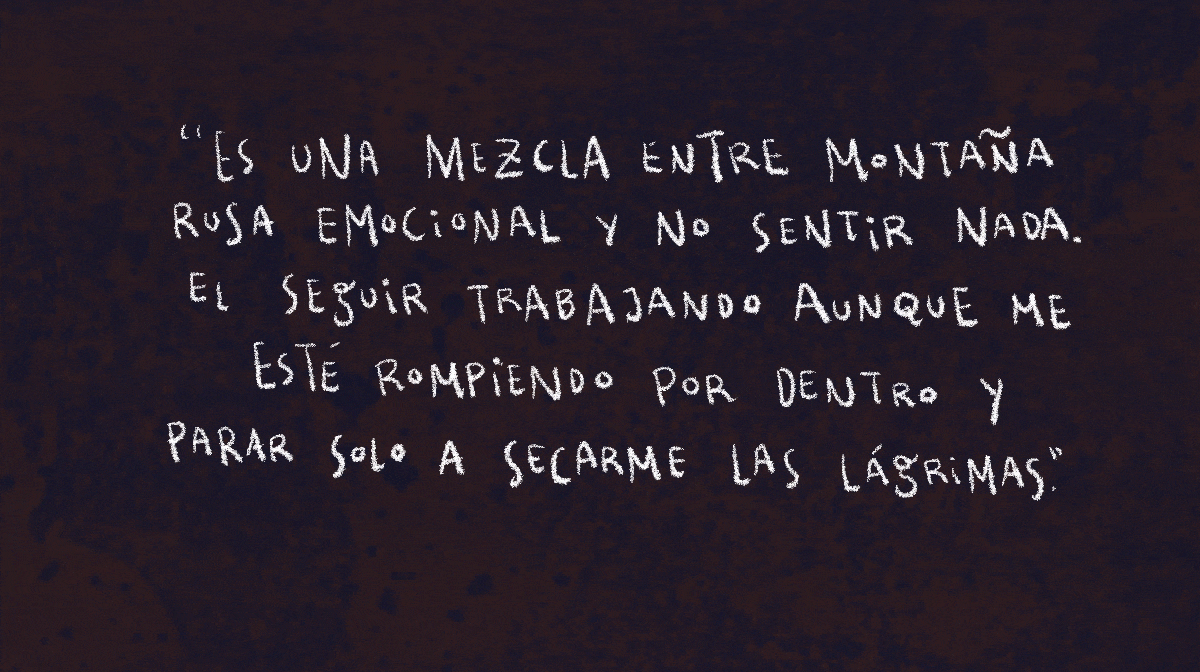 “Es una mezcla entre montaña
rusa emocional y no sentir nada.
El seguir trabajando aunque me
esté rompiendo por dentro y
parar solo a secarme las lágrimas.”